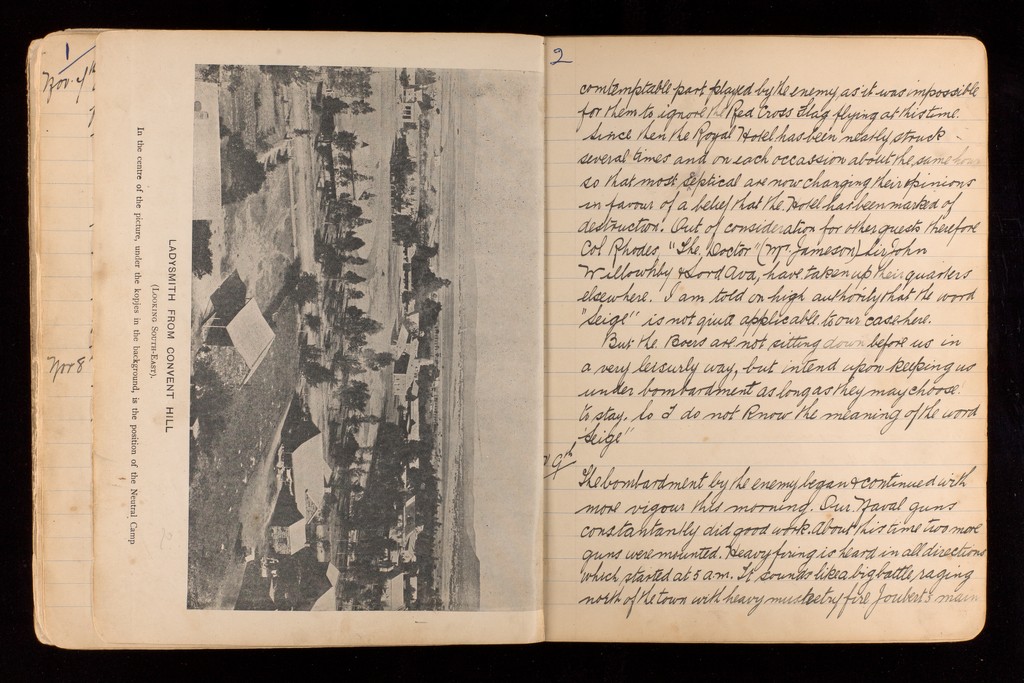 1
Nov. 7th
Nov 8
LADYSMITH FROM CONVENT HILL
(LOOKING SOUTH-EAST).
In the centre of the picture, under the kopjes in the background, is the position of the Neutral Camp
2
comtemptable part played by the enemy as it was impossible
for them to ignore the Red Cross Flag flying at this time.
Since then the Royal Hotel has been nearly struck
several times and on each occassion about the same hour
so that most septical are now changing their opinions
in favour of a belief that the Hotel has been marked of
destruction. Out of consideration for other guests therefore
Col Rhodes, "The Doctor" (Mr Jameson) Sir John
Willowhby & Lord Ava, have taken up their quarters
elsewhere. I am told on high authority that the word
"Seige" is not quit applicable to our case here.
But the Boers are not sitting down before us in
a very leisurly way, but intend upon keeping us
under bombardment as long as they may choose
to stay, so I do not know the meaning of the word
"Seige"
9th
The bombardment by the enemy began & continued with
more vigour this morning. Our Naval guns
constantantly did good work. About this time two more
guns were mounted. Heavy firing is heard in all directions
which started at 5 am. It sounds like a big battle raging
north of the town with heavy musketry fire Joubert's main